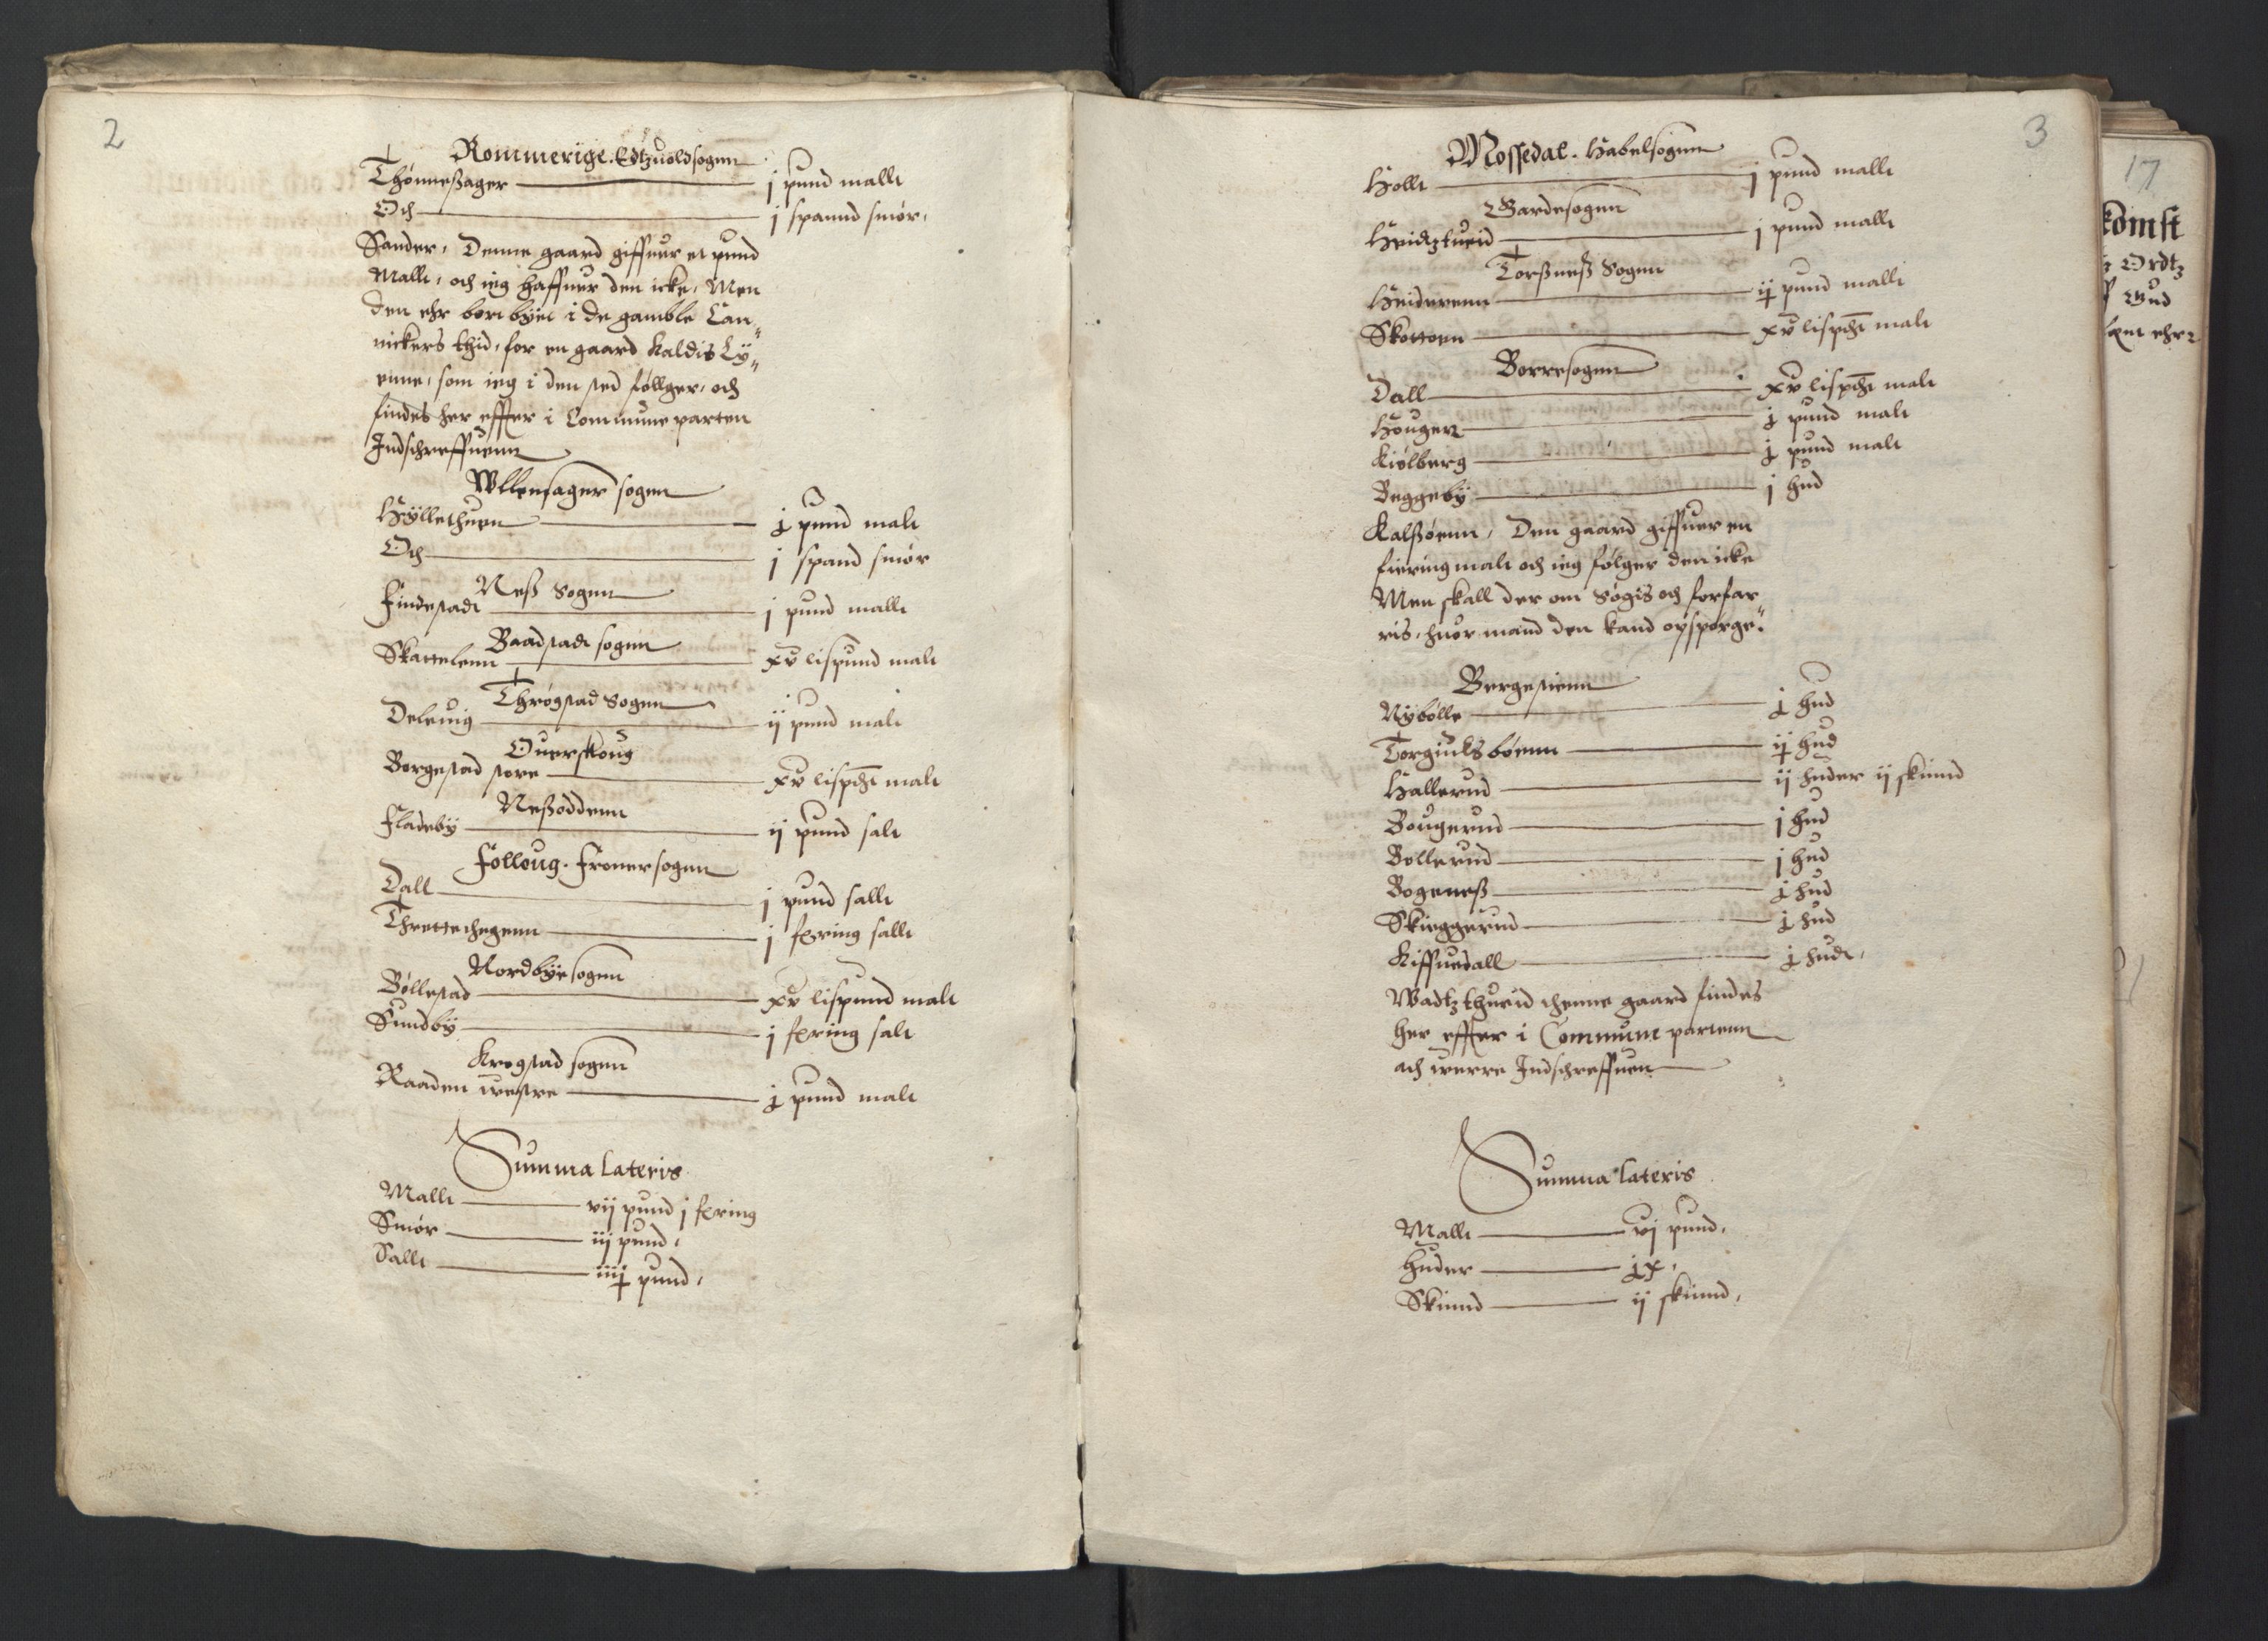 2
Rommerige. Edtzuoldsogenn
Thønneßager — j pund mallt
Och — j spannd smør,
Sander, Denne gaard giffuer et pund
mallt, och ieg haffuer den icke, Men
den ehr bort byet i de gamble Can
nickers thid, for en gaard kaldis Ly
enne, som ieg i den sted føllger, och
findes her effter i Commune parten
Indschreffuenn
Wllensager sogen
Hyllethuen — j pund malt
Och — j spand smør
Neß Sogenn
Findestadt — j pund mallt
Baadstadt sogenn
Skattelenn — xv lispund malt
Thrøgstad Sogenn
Deleuig — ij pund malt
Ouerskoug
Borgestad store — xv lispd malt
Neßoddenn
Fladeby — ij pund salt
Folloug. Fronersogenn
Dall — j pund sallt
Threttechegenn — j fering sallt
Nordbyesogenn
Bøllestad — xv lispund malt
Sundby — j fering salt
Krogstad sogenn
Raaden westre — j pund malt
Summa Lateris
Mallt — vij pund j fering
Smør — iij pund,
Sallt — iiij pund,
3
Mossedal. Habelsogenn
Hollt — j pund mallt
Gardesogenn
Heidtztued — j pund mallt
Torßneß Sogenn
Heiderenn — ij pund mallt
Skottoen — xv lispd malt
Borresogenn
Dall — xv lispd malt
Houger — j pund malt
Kiølberg — j pund malt
Beggeby — j hud
Kalßøenn, Den gaard giffuer en
fiering malt och ieg følger den icke
Men skall der om søgis och forfar
ris, huor mand den kand opspørge.
Bergestienn
Nybølle — j hud
Torgiuls bøenn — ij hud
Hallerud — ij huder ij skiind
Bougerud — j hud
Bollerud — j hud
Bogeneß — j hud
Skieggerud — j hud
Kiffuedall — j hudt,
Wadtzthueid thenne gaard findes
her effter i Commune partenn
att werre Indschreffuen
Summa Lateris
Mallt — vj pund,
Huder — jx,
Skiind — ij skiind,
17
komst
Ordtz
Gud
ehr